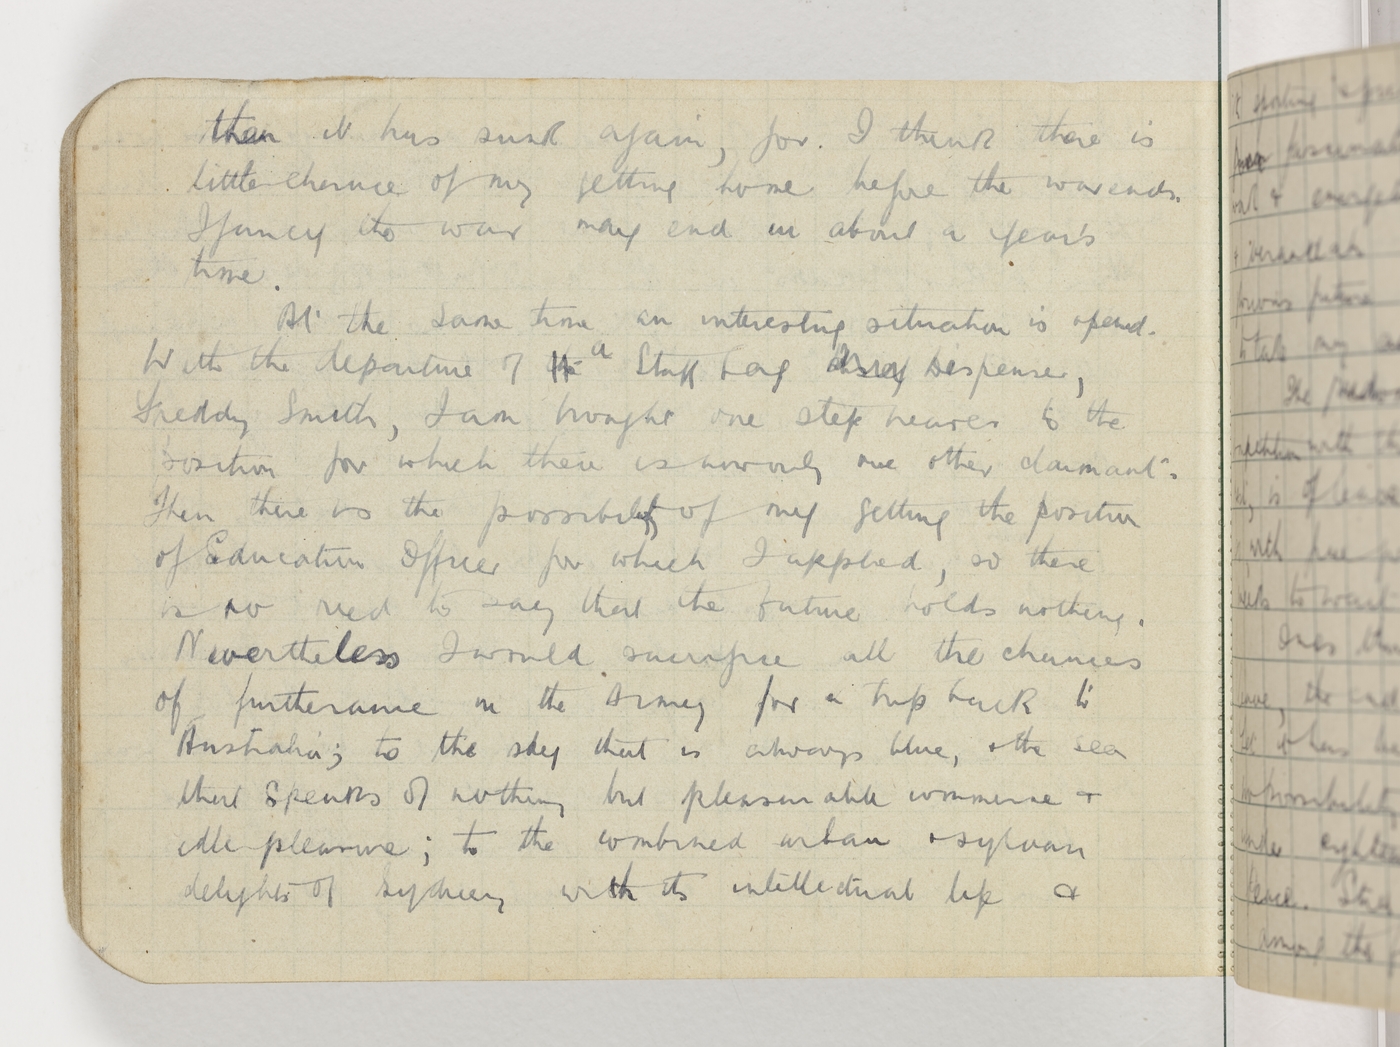 than it has sunk again, for. I think there is
little chance of my getting home before the war ends.
I fancy the war may end in about a year's
time.
At the same time an interesting situation is opened.
With the departure of a Staff Serg Dispenser,
Freddy Smith, I am brought one step nearer to the
position for which there is now only one other claimant.
Then there is the possibility of my getting the position
of Education Officer for which I applied, so there
is no need to say that the future holds nothing.
Nevertheless I would sacrifice all the chances
of furtherance in the Army for a trip back to
Australia; to the sky that is always blue, & the sea
that speaks of nothing but pleasurable commerce &
idle pleasure; to the combined urban & sylvan
delights of Sydney with its intellectual life &